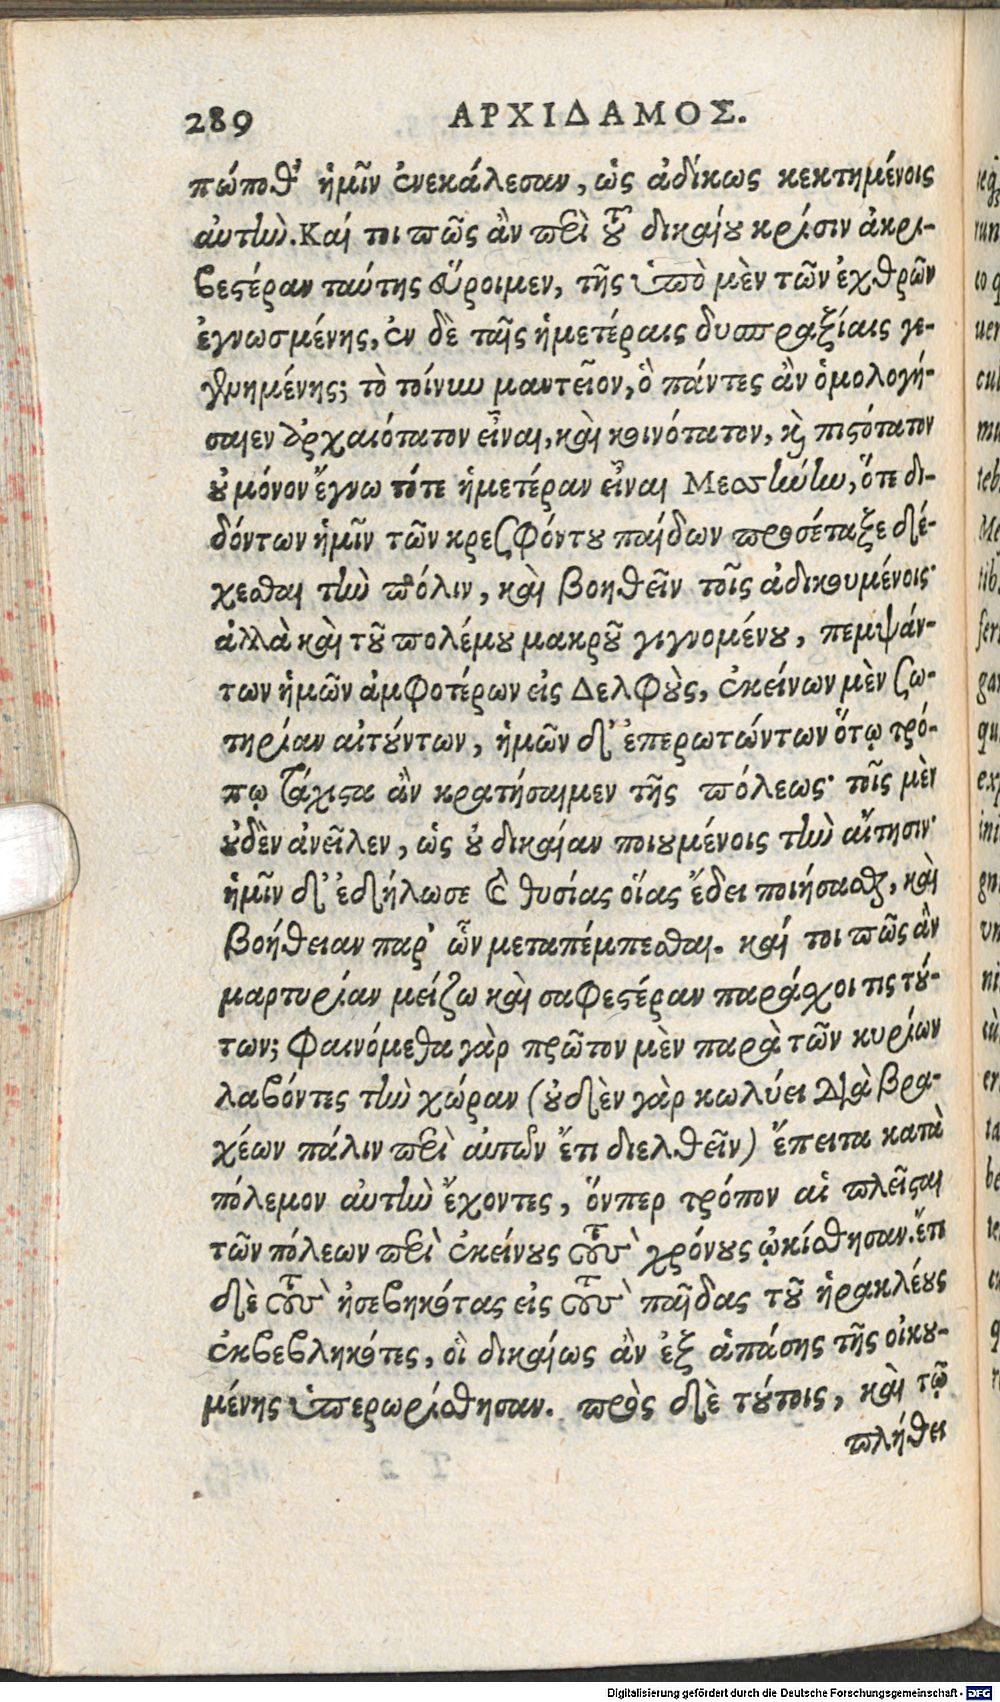 289 ΑΡΧΙΔΑΜΟΣ.
πώποθ' ἡμῖν ἐνεκάλεσαν, ὡς ἀδίκως κεκτημένοις
αὐτὴν. Καί τοι πῶς ἂν περὶ τοῦ δικαίου κρίσιν ἀκρι-
βεστέραν ταύτης εὕροιμεν, τῆς ὑπὸ μὲν τῶν ἐχθρῶν
ἐγνωσμένης, ἐν δὲ ταῖς ἡμετέραις δυσπραξίαις γε-
γενημένης; τὸ τοίνυν μαντεῖον, ὃ πάντες ἂν ὁμολογή-
σαιεν ἀρχαιότατον εἶναι, καὶ κοινότατον, καὶ πιστότατον
οὐ μόνον ἔγνω τότε ἡμετέραν εἶναι Μεσσήνην, ὅτε δι-
δόντων ἡμῖν τῶν κρεσφόντου παίδων προσέταξε δέ-
χεσθαι τὴν πόλιν, καὶ βοηθεῖν τοῖς ἀδικουμένοις·
ἀλλὰ καὶ τοῦ πολέμου μακροῦ γιγνομένου, πεμψάν-
των ἡμῶν ἀμφοτέρων εἰς Δελφοὺς, ἐκείνων μὲν σω-
τηρίαν αἰτούντων, ἡμῶν δ' ἐπερωτώντων ὅτῳ τρό-
πῳ τάχιστα ἂν κρατήσαιμεν τῆς πόλεως· τοῖς μὲν
οὐδὲν ἀνεῖλεν, ὡς οὐ δικαίαν ποιουμένοις τὴν αἴτησιν·
ἡμῖν δ' ἐδήλωσε καὶ θυσίας οἵας ἔδει ποιήσασθαι, καὶ
βοήθειαν παρ' ὧν μεταπέμπεσθαι. καί τοι πῶς ἂν
μαρτυρίαν μείζω καὶ σαφεστέραν παράσχοι τις τού-
των; φαινόμεθα γὰρ πρῶτον μὲν παρὰ τῶν κυρίων
λαβόντες τὴν χώραν (οὐδὲν γὰρ κωλύει διὰ βρα-
χέων πάλιν περὶ αὐτῶν ἔτι διελθεῖν) ἔπειτα κατὰ
πόλεμον αὐτὴν ἔχοντες, ὅνπερ τρόπον αἱ πλεῖσται
τῶν πόλεων περὶ ἐκείνους τοὺς χρόνους ᾠκίσθησαν. ἔτι
δὲ τοὺς ἠσεβηκότας εἰς τοὺς παῖδας τοῦ ἡρακλέους
ἐκβεβληκότες, οἳ δικαίως ἂν ἐξ ἁπάσης τῆς οἰκου-
μένης ὑπερωρίσθησαν. πρὸς δὲ τούτοις, καὶ τῷ
πλήθει
Digitalisierung gefördert durch die Deutsche Forschungsgemeinschaft - DFG